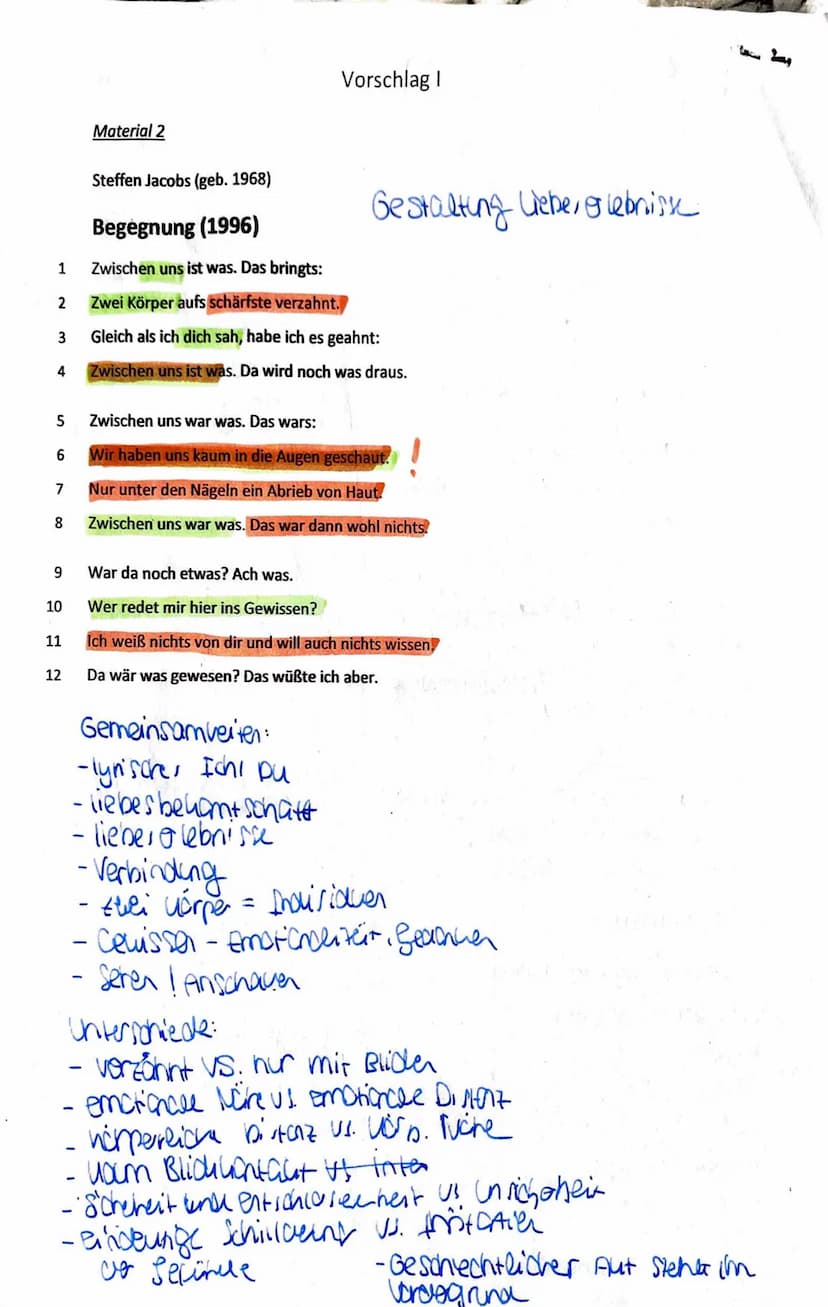 Vorschlag I
Material 2
Steffen Jacobs (geb. 1968)
Gestaltung Liebeserlebnisse
Begegnung (1996)
1 Zwischen uns ist was. Das bringts:
2 Zwei Körper aufs schärfste verzahnt.
3 Gleich als ich dich sah, habe ich es geahnt:
4 Zwischen uns ist was. Da wird noch was draus.
5 Zwischen uns war was. Das wars:
6 Wir haben uns kaum in die Augen geschaut. !
7 Nur unter den Nägeln ein Abrieb von Haut.
8 Zwischen uns war was. Das war dann wohl nichts.
9 War da noch etwas? Ach was.
10 Wer redet mir hier ins Gewissen?
11 Ich weiß nichts von dir und will auch nichts wissen.
12 Da wär was gewesen? Das wüßte ich aber.
Gemeinsamkeiten:
- lyrisches Ich / Du
- Liebesbekanntschaft
- Liebeserlebnisse
- Verbindung
- zwei Körper = Individuen
- Gewissen - Emotionalität, Gedanken
- Sehen / Anschauen
Unterschiede:
- verzahnt vs. nur mit Blicken
- emotionale Nähe vs. emotionale Distanz
- körperliche Distanz vs. körp. Nähe
- kaum Blickkontakt
- Sicherheit und Entschlossenheit vs Unsicherheit
- Schilderung vs.
der Gefühle
- Geschlechtlicher Akt steht im
Vordergrund